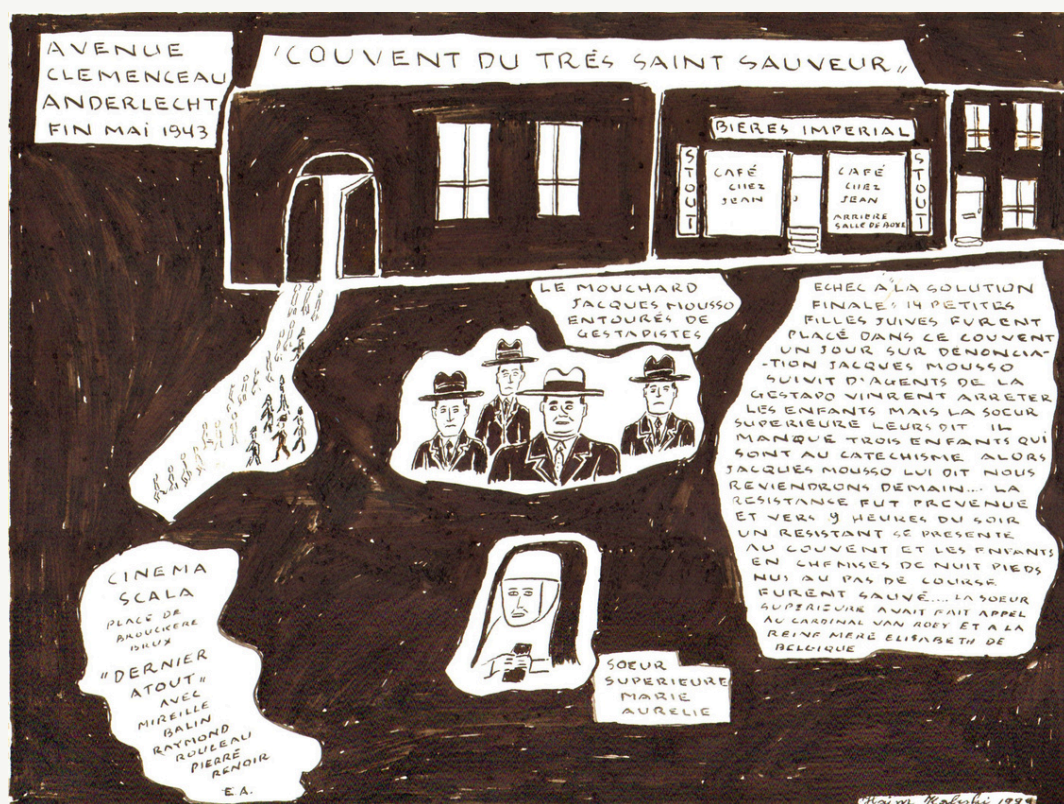 AVENUE
CLEMENCEAU
ANDERLECHT
FIN MAI 1943
"COUVENT DU TRÉS SAINT SAUVEUR"
BIERES IMPERIAL
STOUT
CAFÉ
CHEZ
JEAN
CAFÉ
CHEZ
JEAN
ARRIERE
SALLE DE BOXE
STOUT
LE MOUCHARD
JACQUES MOUSSO
ENTOURÉS DE
GESTAPISTES
ECHEC A LA SOLUTION
FINALE : 14 PETITES
FILLES JUIVES FURENT
PLACÉ DANS CE COUVENT
UN JOUR SUR DENONCIA-
-TION JACQUES MOUSSO
SUIVIT D'AGENTS DE LA
GESTAPO VINRENT ARRETER
LES ENFANTS MAIS LA SOEUR
SUPERIEURE LEURS DIT IL
MANQUE TROIS ENFANTS QUI
SONT AU CATECHISME ALORS
JACQUES MOUSSO LUI DIT NOUS
REVIENDRONS DEMAIN... LA
RESISTANCE FUT PREVENUE
ET VERS 9 HEURES DU SOIR
UN RESISTANT SE PRESENTE
AU COUVENT ET LES ENFANTS
EN CHEMISES DE NUIT PIEDS
NUS AU PAS DE COURSE
FURENT SAUVÉ.... LA SOEUR
SUPERIEURE AVAIT FAIT APPEL
AU CARDINAL VAN ROEY ET A LA
REINE MERE ELISABETH DE
BELGIQUE
CINEMA
SCALA
PLACE DE
BROUCKERE
BRUX
"DERNIER
ATOUT"
AVEC
MIREILLE
BALIN
RAYMOND
ROULEAU
PIERRE
RENOIR
E.A.
SOEUR
SUPERIEURE
MARIE
AURELIE